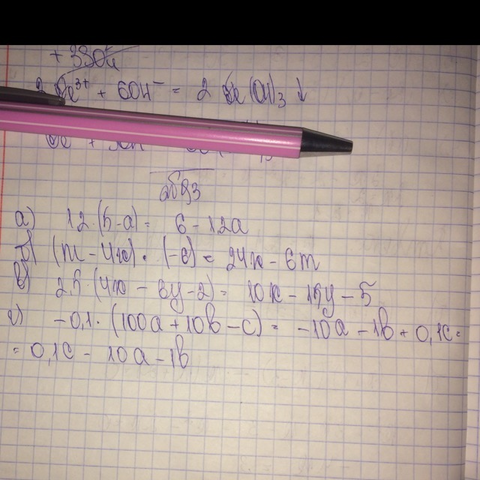 + 3SO₄
2 Fe³⁺ + 6OH⁻ = 2 Fe(OH)₃ ↓
а) 12 (5-a) = 6 - 12a
б) (m - 4n) · (-6) = 24n - 6m
в) 2,5 (4x - 6y - 2) = 10x - 15y - 5
г) -0,1 · (100a + 10b - c) = -10a - 1b + 0,1c =
= 0,1c - 10a - 1b